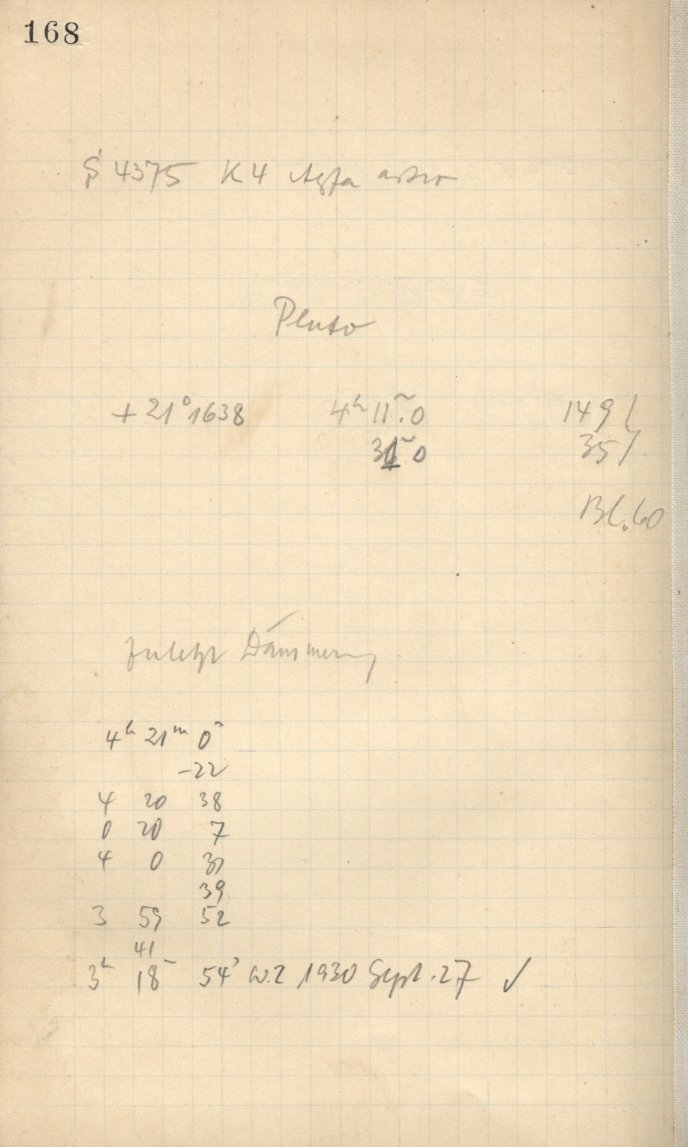 168
4375 K4 Agfa astro
Pluto
+ 21° 1638 4ʰ 11ᵐ.0 149
31ᵐ 0 35
Bl. 60
zuletzt Dämmerung
4ʰ 21ᵐ 0ˢ
-22
4 20 38
0 20 7
4 0 31
39
3 59 52
41
3ʰ 18ᵐ 54ˢ W.Z 1930 Sept. 27 ✓